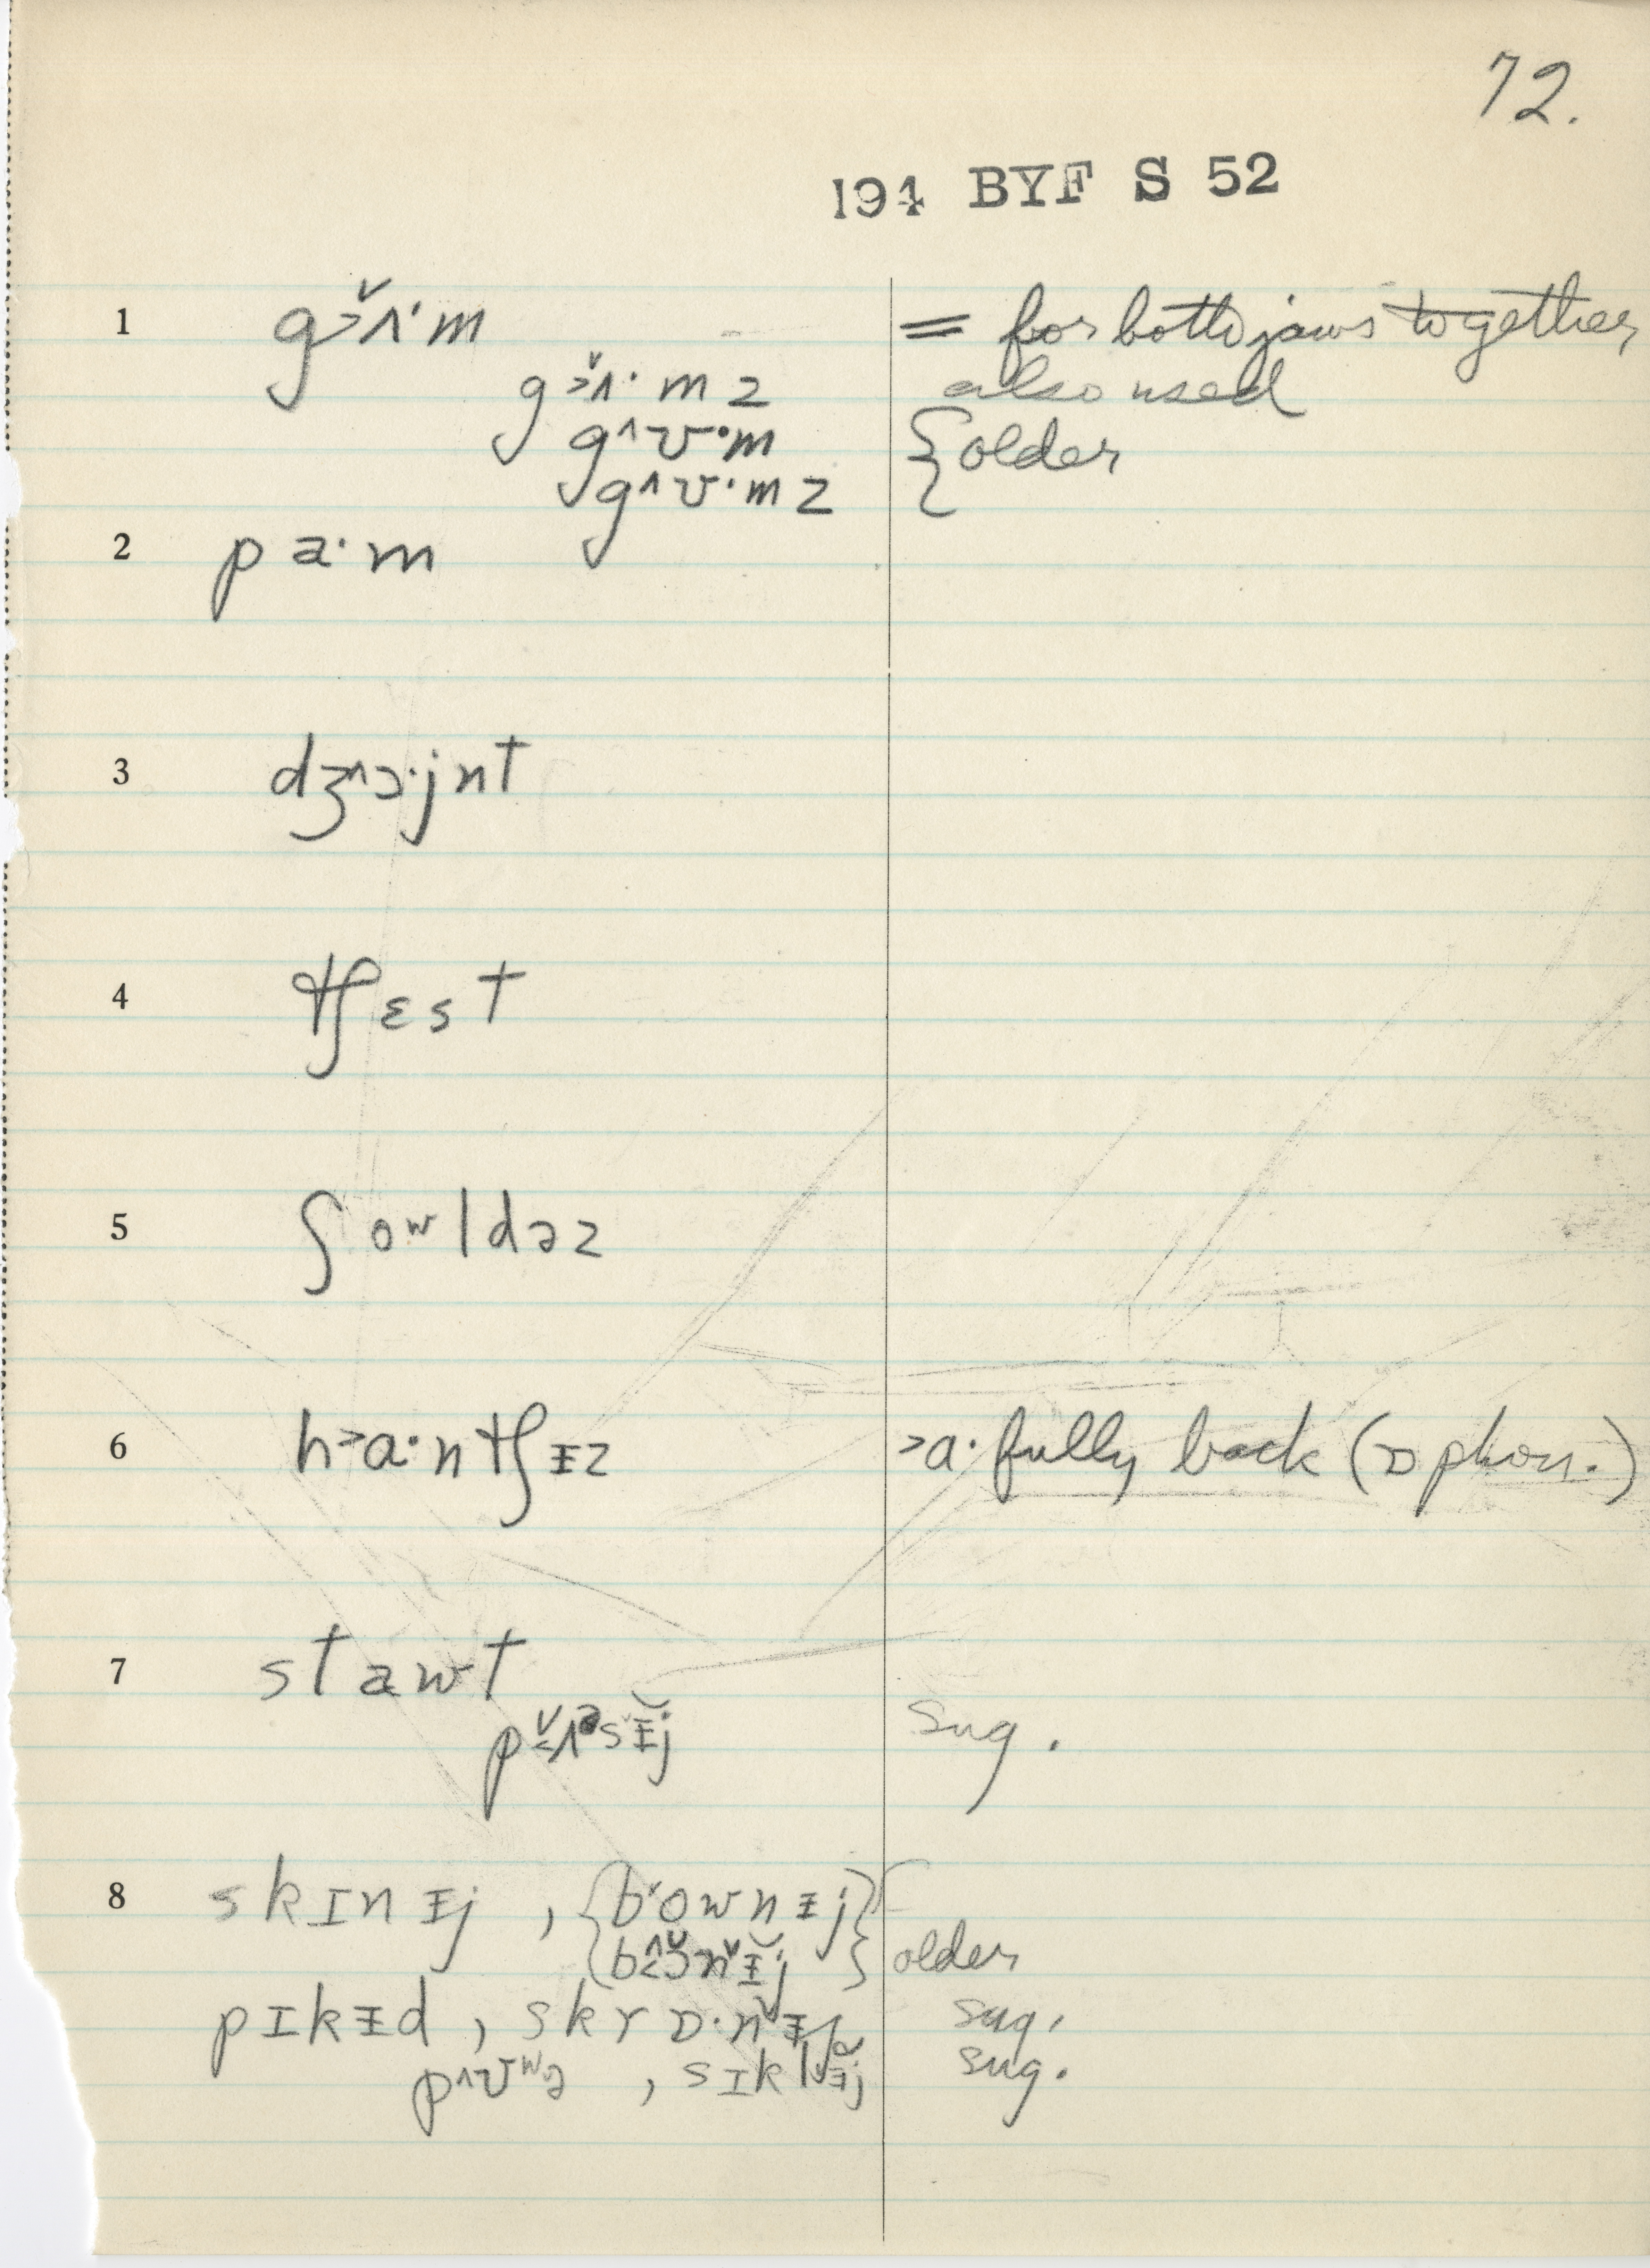 72.
194 BYF S 52
1 g˃ʌ̌·m = for both jaws together
g˃ʌ̌·mz also used
g^ʊ·m { older
g^ʊ·mz
2 pa·m
3 dʒ^ɔ·jnt
4 tʃɛst
5 ʃoʷldəz
6 h˃a·ntʃɪz ˃a· fully back (ɒ phon.)
7 stawt
sug.
8 skɪnɪj , {b˅ownɪj}
older
pɪkɪd , sug.
p^ʊʷə , sɪklɪj sug.